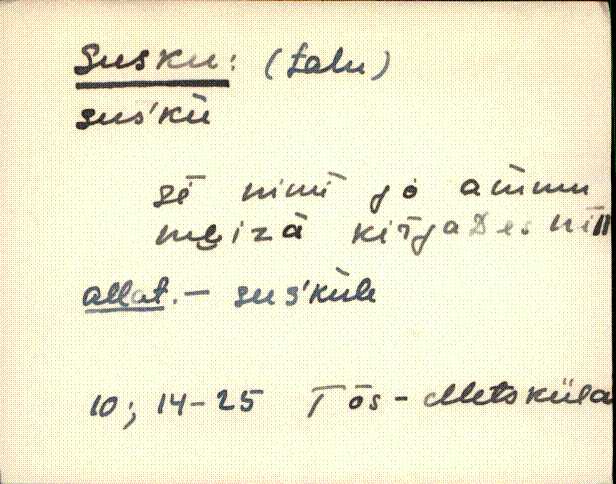 Susku: (talu)
sus'kù
sē nimī jo ammu
mẹizā kīrjaDes
allat. — sus'kùle
10; 14-25 Tõs - Metsküla